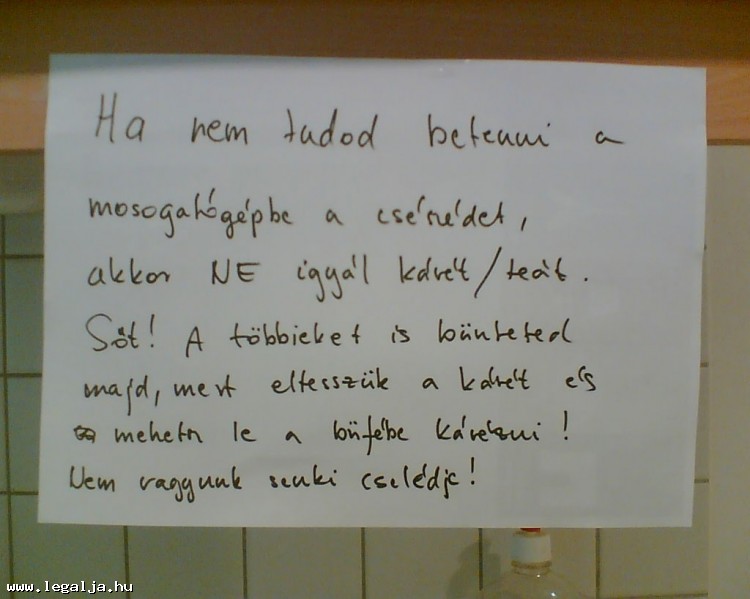 Ha nem tudod betenni a
mosogatógépbe a csészédet,
akkor NE igyál kávét/teát.
Sőt! A többieket is bünteted
majd, mert eltesszük a kávét és
mehetn le a büfébe kávézni!
Nem vagyunk senki cselédje!
www.legalja.hu